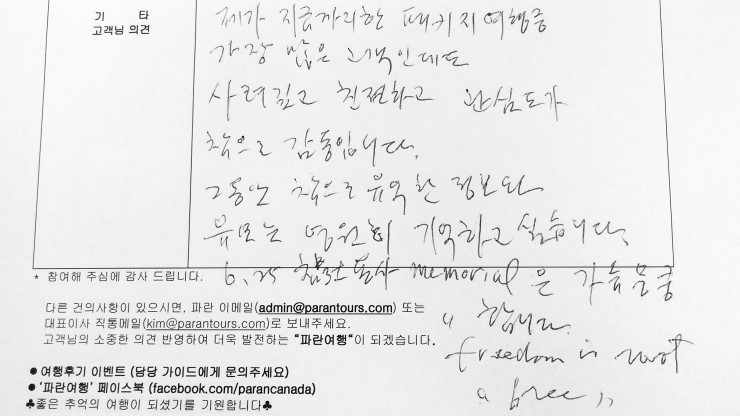 기 타
고객님 의견
제가 지금까지한 패키지여행중
가장 많은 고객인데도
사려깊고 친절하고 관심도가
참으로 감동입니다.
그동안 참으로 유익한 정보와
유모는 영원히 기억하고 싶습니다.
6.25 참전용사 memorial 은 가슴뭉쿵
합니다.
freedom is not
a free
* 참여해 주심에 감사 드립니다.
다른 건의사항이 있으시면, 파란 이메일(admin@parantours.com) 또는
대표이사 직통메일(kim@parantours.com)로 보내주세요.
고객님의 소중한 의견 반영하여 더욱 발전하는 "파란여행"이 되겠습니다.
● 여행후기 이벤트 (담당 가이드에게 문의주세요)
● '파란여행' 페이스북 (facebook.com/parancanada)
♣좋은 추억의 여행이 되셨기를 기원합니다♣